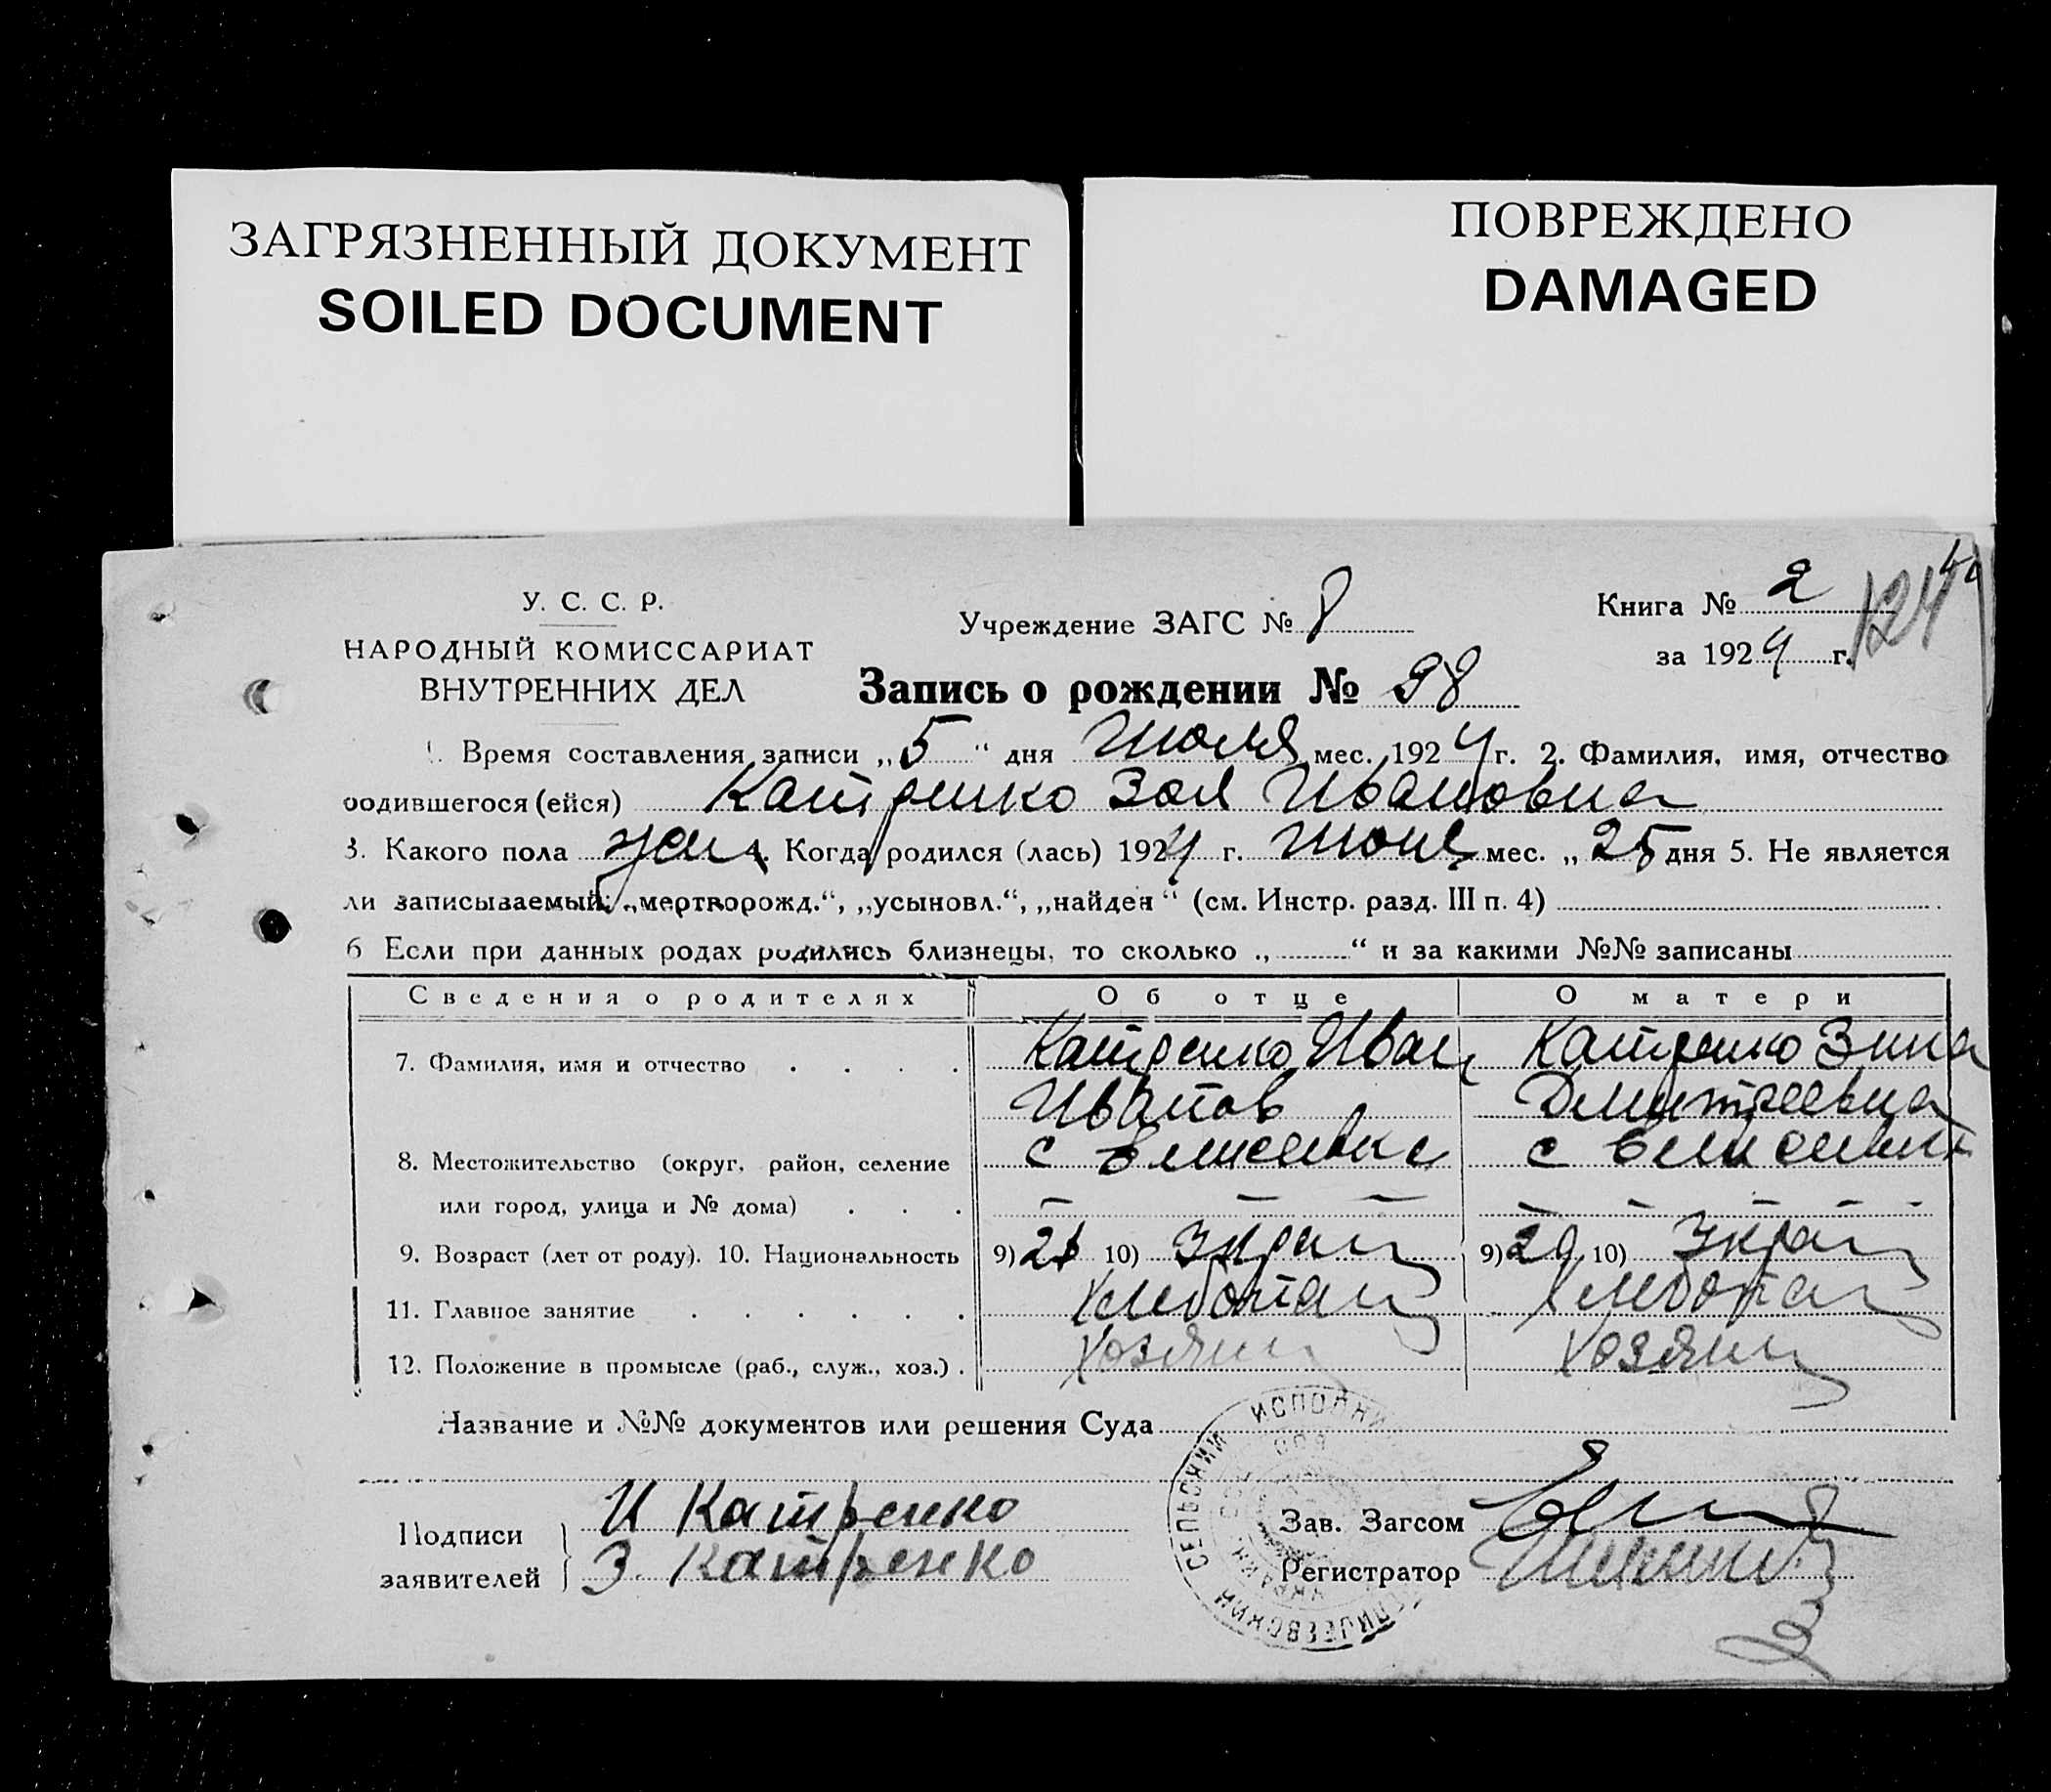 ЗАГРЯЗНЕННЫЙ ДОКУМЕНТ
SOILED DOCUMENT
ПОВРЕЖДЕНО
DAMAGED
У. С. С. Р.
НАРОДНЫЙ КОМИССАРИАТ
ВНУТРЕННИХ ДЕЛ
Учреждение ЗАГС № 8
Книга № 2
за 1924 г.
124
Запись о рождении № 98
1. Время составления записи „5“ дня Июля мес. 1924 г. 2. Фамилия, имя, отчество
родившегося (ейся) Катренко Зоя Ивановна
3. Какого пола жен 4. Когда родился (лась) 1924 г. Июня мес. „25 дня 5. Не является
ли записываемый: „мертворожд.“, „усыновл.“, „найден“ (см. Инстр. разд. III п. 4)
6 Если при данных родах родились близнецы, то сколько „ “ и за какими №№ записаны
Сведения о родителях Об отце О матери
7. Фамилия, имя и отчество . . . . Катренко Иван Катренко Зина
Иванов Дмитреевна
8. Местожительство (округ, район, селение с Елисеевка с Елисеевка
или город, улица и № дома) . . . – – – – – – – –
9. Возраст (лет от роду). 10. Национальность 9) 10) Украин 9) 20 10) Украин
11. Главное занятие . . . . . . Хлебопаш Хлебопаш
12. Положение в промысле (раб., служ., хоз.) . Хозяин Хозяин
Название и №№ документов или решения Суда
Подписи
заявителей
И Катренко
З. Катренко
Зав. Загсом
Регистратор
СЕЛЬСКИЙ ИСПОЛНИ
ЕЛИСЕЕВСКИЙ